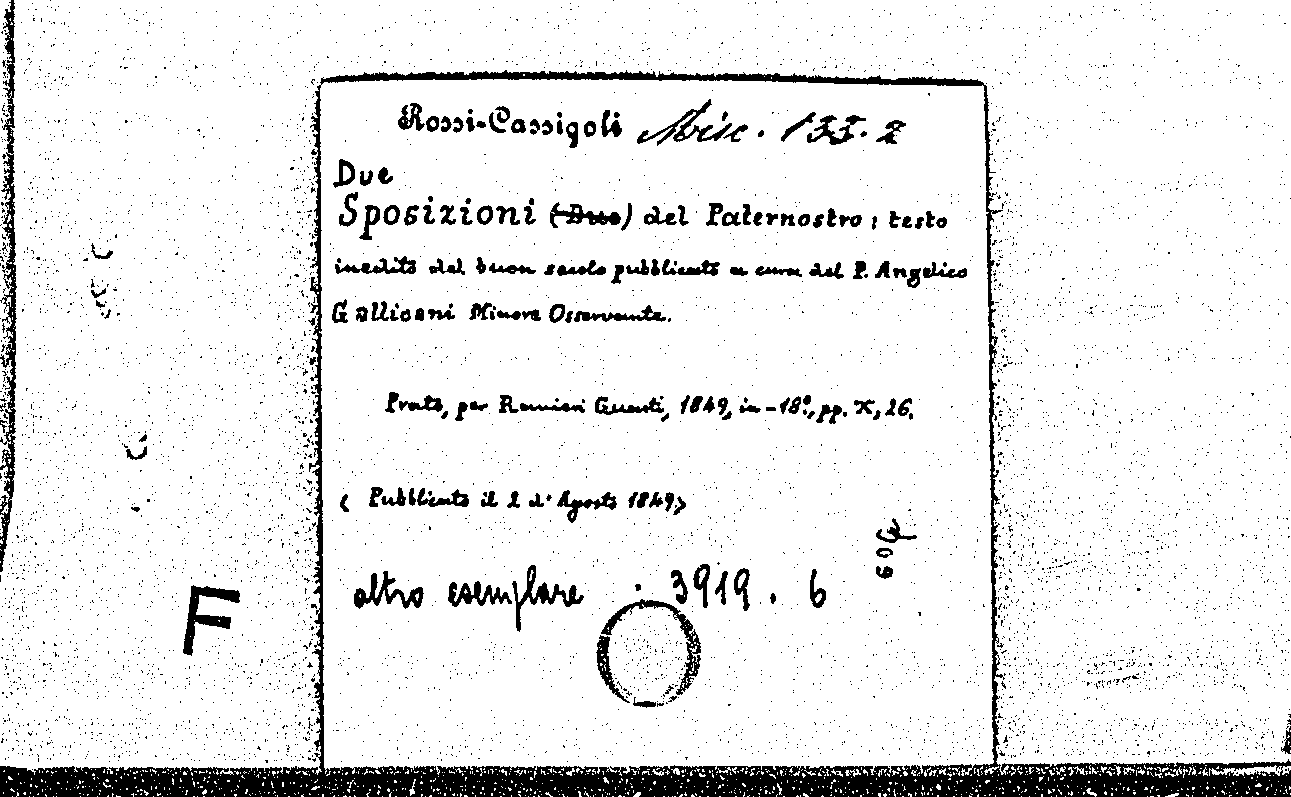 Rossi-Cassigoli Misc. 155. 2
Due
Sposizioni (Due) del Paternostro; testo
inedito del buon secolo pubblicato a cura del P. Angelico
Gallicani Minore Osservante.
Prato, per Ranieri Guasti, 1849, in-18°, pp. X, 26.
(Pubblicato il 2 d'Agosto 1849)
altro esemplare : 3919. 6
F